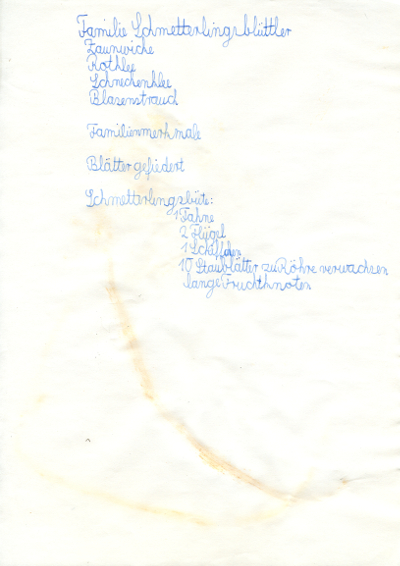 Familie Schmetterlingsblüttler
Zaunwicke
Rothlee
Schneckenklee
Blasenstrauch
Familienmerkmale
Blätter gefiedert
Schmetterlingsblüte:
1 Fahne
2 Flügel
1 Schiffchen
10 Staubblätter zu Röhre verwachsen
lange Fruchthnoten